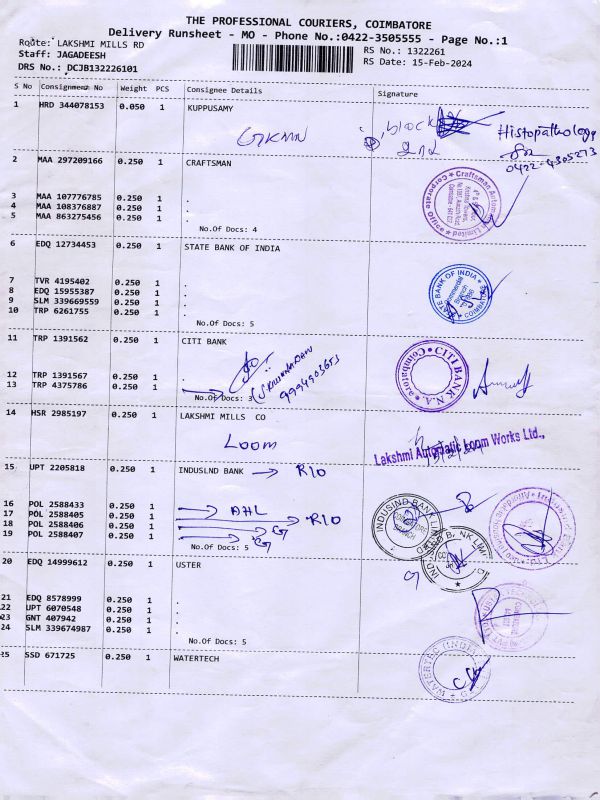 THE PROFESSIONAL COURIERS, COIMBATORE
Delivery Runsheet - MO - Phone No.:0422-3505555 - Page No.:1
Route: LAKSHMI MILLS RD
RS No.: 1322261
Staff: JAGADEESH
RS Date: 15-Feb-2024
DRS No.: DCJB132226101
S No Consignment No Weight PCS Consignee Details Signature
1 HRD 344078153 0.050 1 KUPPUSAMY
GKMN
block
2nd
Histopathology
0422-4305273
2 MAA 297209166 0.250 1 CRAFTSMAN
3 MAA 107776785 0.250 1 .
4 MAA 108376887 0.250 1 .
5 MAA 863275456 0.250 1 .
No.Of Docs: 4
Craftsman Automation Limited
Corporate Office
6 EDQ 12734453 0.250 1 STATE BANK OF INDIA
7 TVR 4195402 0.250 1 .
8 EDQ 15955387 0.250 1 .
9 SLM 339669559 0.250 1 .
10 TRP 6261755 0.250 1 .
No.Of Docs: 5
STATE BANK OF INDIA
Commercial
Branch
COIMBATORE
11 TRP 1391562 0.250 1 CITI BANK
12 TRP 1391567 0.250 1 .
13 TRP 4375786 0.250 1 .
No.Of Docs: 3
9994903653
CITI BANK N.A.
Coimbatore
14 HSR 2985197 0.250 1 LAKSHMI MILLS CO
LOOM
Lakshmi Automatic Loom Works Ltd.,
15 UPT 2205818 0.250 1 INDUSLND BANK → RIO
16 POL 2588433 0.250 1 . → AHL
17 POL 2588405 0.250 1 . → RIO
18 POL 2588406 0.250 1 . → G
19 POL 2588407 0.250 1 . → G
No.Of Docs: 5
INDUSIND BANK LIMITED
20 EDQ 14999612 0.250 1 USTER
21 EDQ 8578999 0.250 1 .
22 UPT 6070548 0.250 1 .
23 GNT 407942 0.250 1 .
24 SLM 339674987 0.250 1 .
No.Of Docs: 5
25 SSD 671725 0.250 1 WATERTECH
WATERTEC (INDIA)